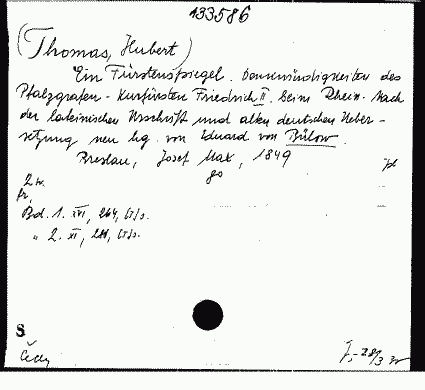 133586
(Thomas, Hubert)
Ein Fürstenspiegel. Denkwürdigkeiten des
Pfalzgrafen-Kurfürsten Friedrich II. beim Rhein. Nach
der lateinischen Urschrift und alten deutschen Ueber-
setzung neu hg. von Eduard von Bülow.
Breslau, Josef Max, 1849
8°
Bd. 1. XVI, 264, (1) s.
" 2. XI,
S